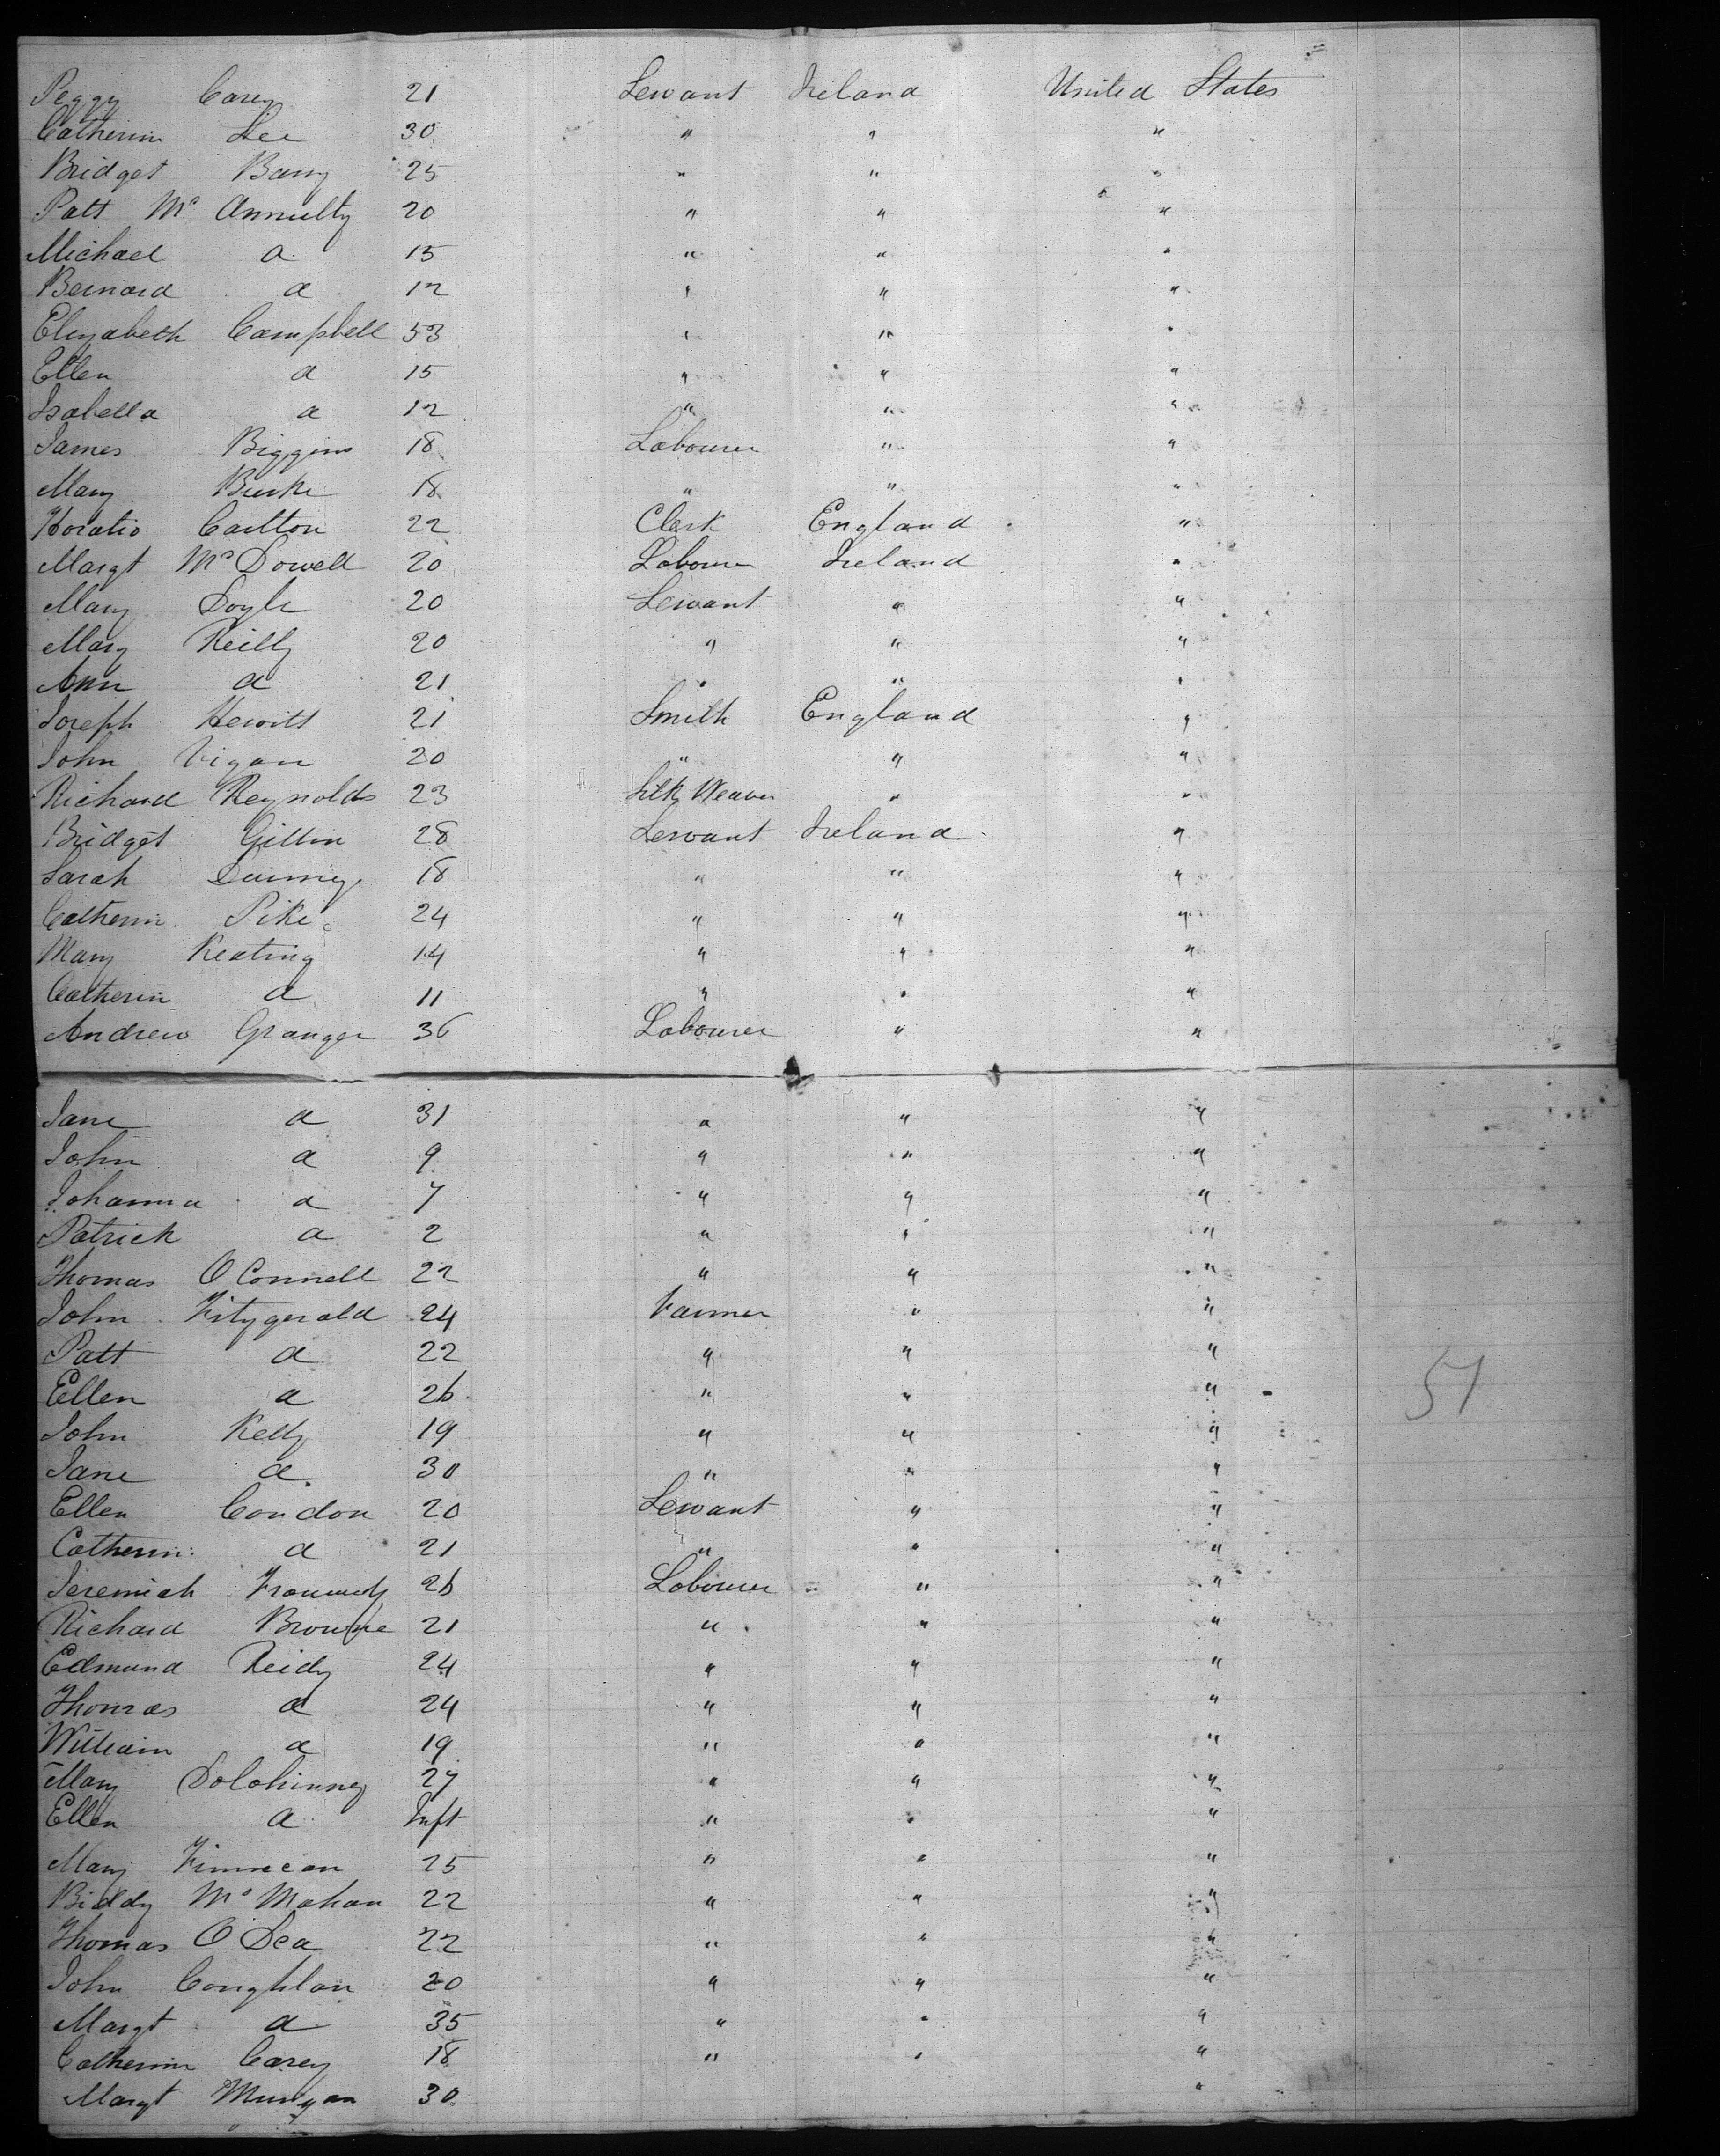 Peggy Carey 21 Servant Ireland United States
Catherin Lee 30 " " "
Bridget Barry 25 " " "
Patt Mc Annulty 20 " " "
Michael a 15 " " "
Bernard a 12 " " "
Elizabeth Campbell 53 " " "
Ellen a 15 " " "
Isabella a 12 " " "
James Biggins 18 Labourer " "
Mary Burke 18 " " "
Horatio Carlton 22 Clerk England "
Margt McDowell 20 Labourer Ireland "
Mary Doyle 20 Servant " "
Mary Reilly 20 " " "
Ann a 21 " " "
Joseph Hewitt 21 Smith England "
John Vigan 20 " " "
Richard Reynolds 23 Silk Weaver " "
Bridget Gillin 28 Servant Ireland "
Sarah 18 " " "
Catherin Pike 24 " " "
Mary Keating 14 " " "
Catherin a 11 " " "
Andrew Granger 36 Labourer " "
Jane a 31 " " "
John a 9 " " "
Johanna a 7 " " "
Patrick a 2 " " "
Thomas O Connell 22 " " "
John Fitzgerald 24 Farmer " "
Patt a 22 " " "
Ellen a 26 " " "
John Kelly 19 " " "
Jane a 30 " " "
Ellen Condon 20 Servant " "
Catherin a 21 " " "
Jeremiah 26 Labourer " "
Richard Browne 21 " " "
Edmund Reidy 24 " " "
Thomas a 24 " " "
William a 19 " " "
Mary Dolohinney 27 " " "
Ellen a Inft " " "
Mary Finnecan 25 " " "
Biddy McMahan 22 " " "
Thomas O Dea 22 " " "
John Coughlan 20 " " "
Margt a 35 " " "
Catherin Carey 18 " " "
Margt 30 "
51